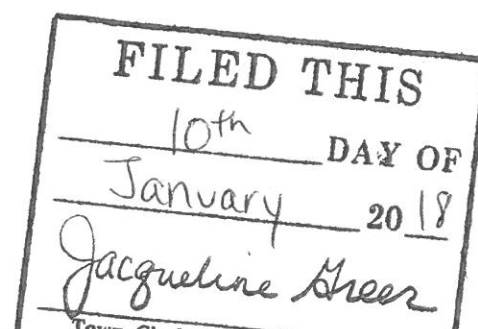 FILED THIS
10th DAY OF
January 2018
Jacqueline Greer
Town